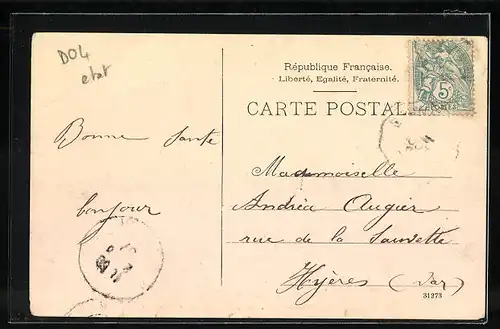 D04
etat
République Française.
Liberté, Egalité, Fraternité.
CARTE POSTALE
5
Bonne Sante
bonjour
Mademoiselle
Andréa Augier
rue de la Sauvette
Hyères (Var)
31273